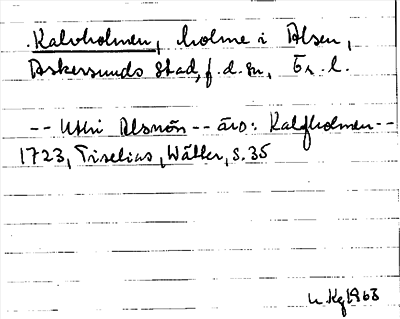 Kalvholmen, holme i Alsen,
Askersunds stad, f.d. sn, Ör. l.
-- Uthi Alsnön -- äro: Kalfholmen --
1723, Tiselius, Wätter, s. 35
1963